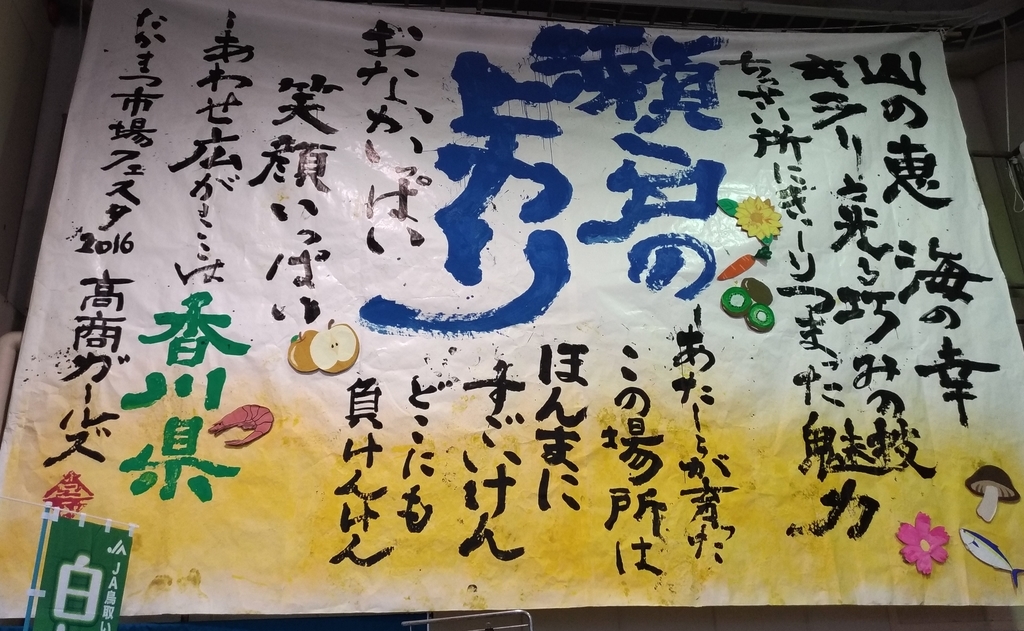 山の恵 海の幸
キラリと光る巧みの技
ちっさい所にぎっしりつまった魅力
瀬戸の
あたしらが育った
この場所は
ほんまに
すごいけん
どこにも
負けんけん
おなかいっぱい
笑顔いっぱい
しあわせ広がるここは
香川県
たかまつ市場フェスタ2016 高商ガールズ
JA鳥取い
白